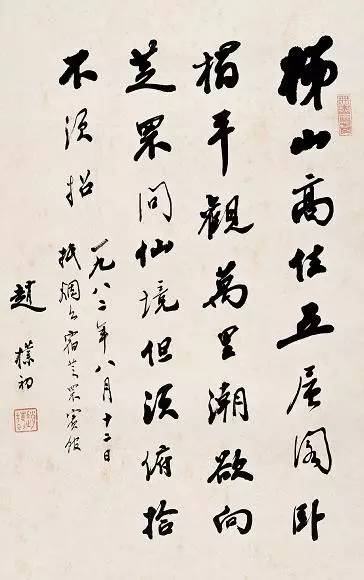 梯山高住五层阁卧
榻平觀萬里潮欲向
芝罘问仙境但须俯拾
不须招
一九八二年八月十二日
抵烟台宿芝罘宾馆
趙樸初